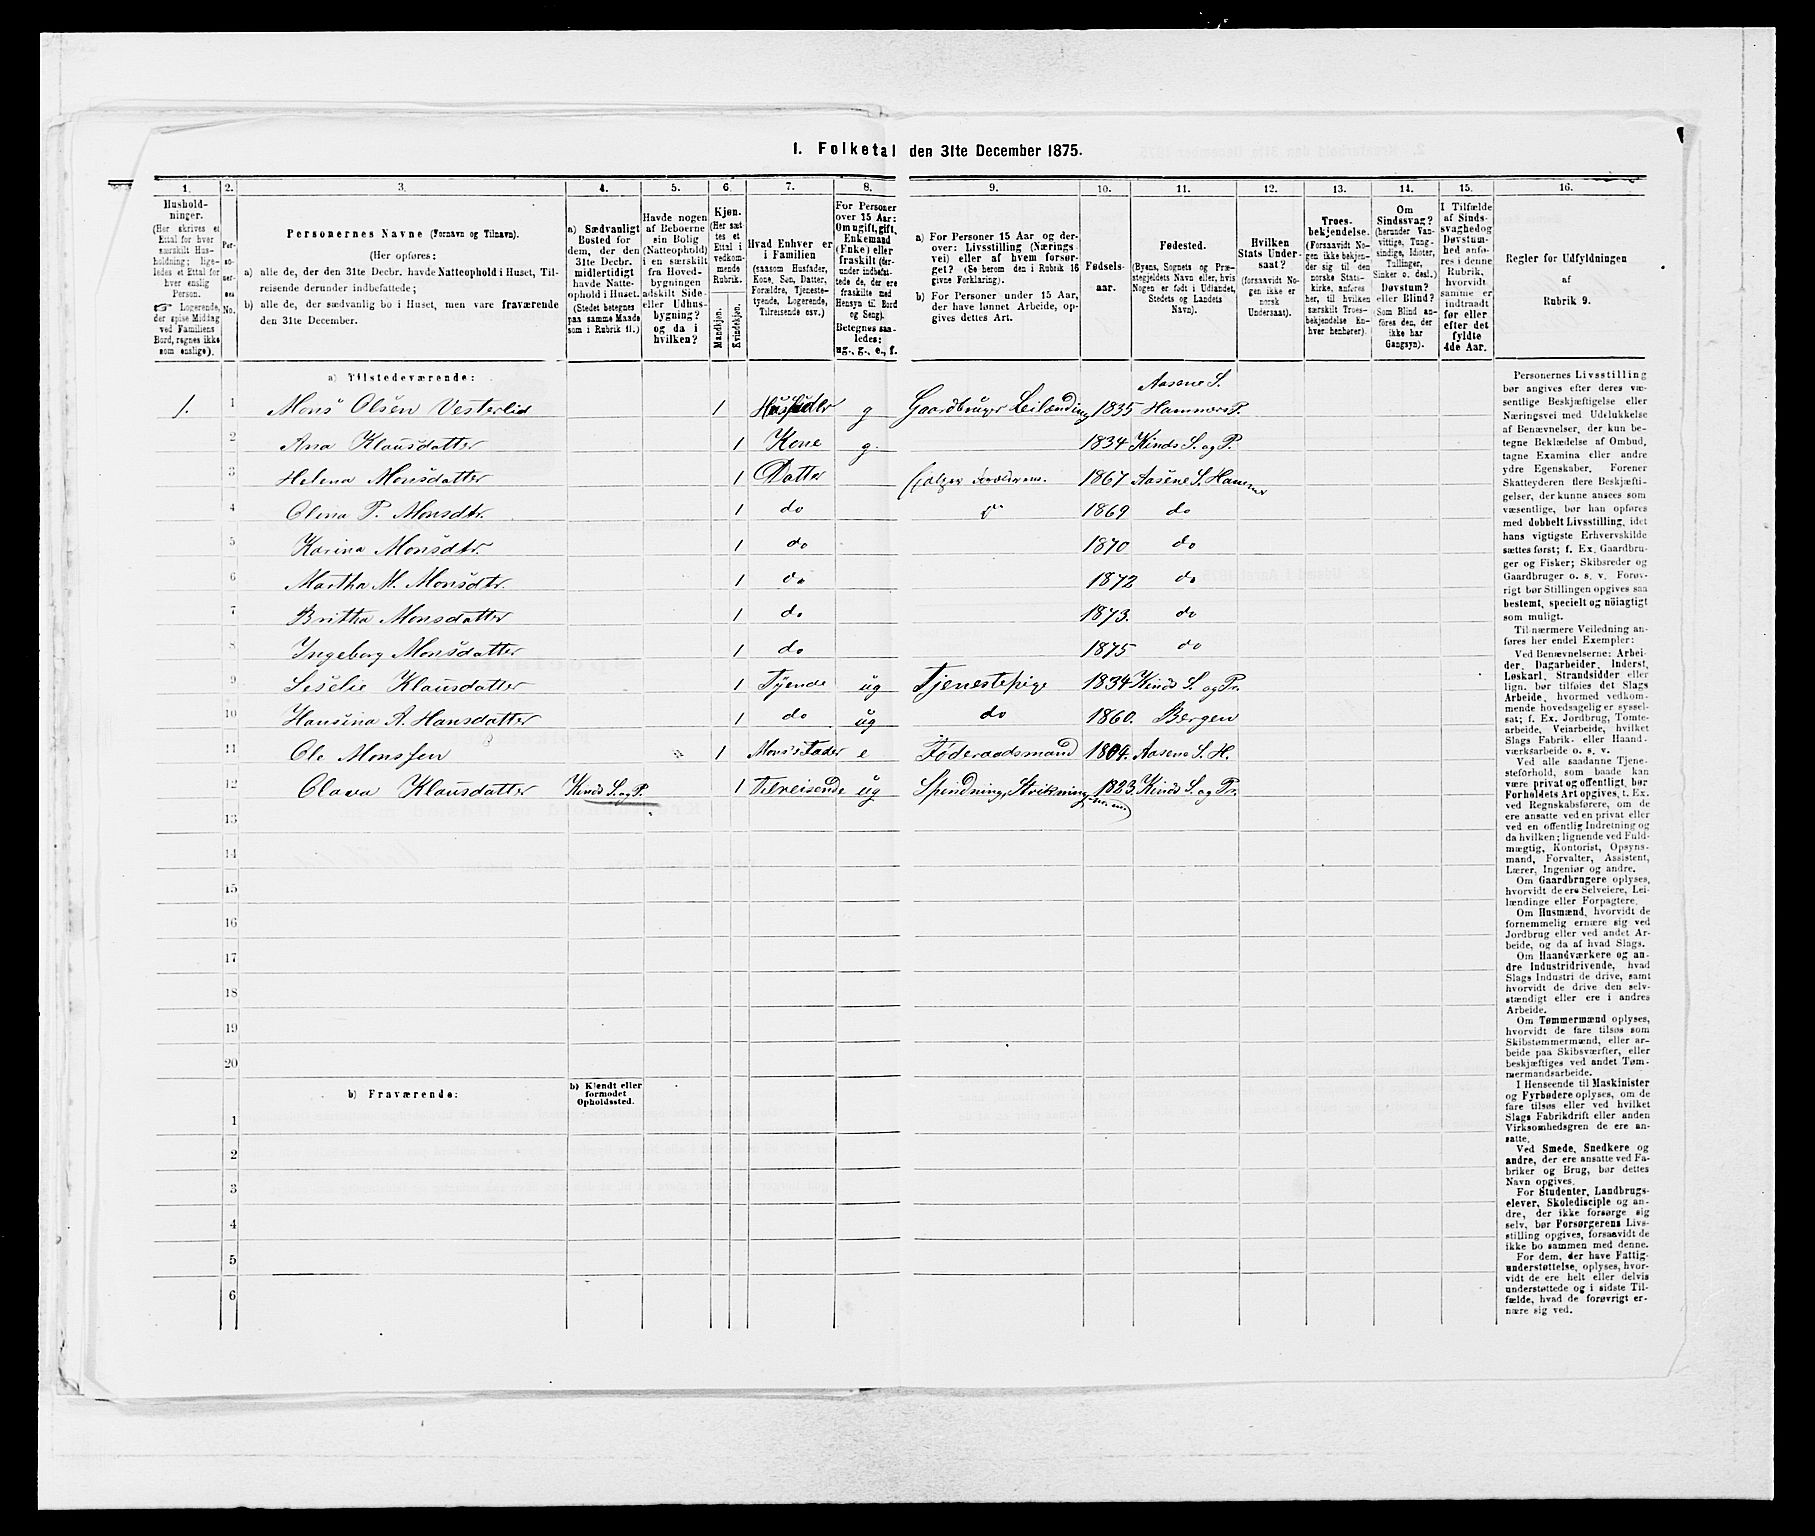 1. Folketal den 31te December 1875.
1. 2. 3. 4. 5. 6. 7. 8. 9. 10. 11. 12. 13. 14. 15. 16.
Hushold-
ninger.
(Her skrives et
Ettal for hver
særskilt Hus-
holdning; lige-
ledes et Ettal for
hver enslig
Person.
☞ Logerende,
der spise Middag
ved Familiens
Bord, regnes ikke
som enslige).
Per-
so-
ner-
nes
No.
Personernes Navne (Fornavn og Tilnavn).
(Her opføres:
a) alle de, der den 31te Decbr. havde Natteophold i Huset, Til-
reisende derunder indbefattede;
b) alle de, der sædvanlig bo i Huset, men vare fraværende
den 31te December.
a) Sædvanligt
Bosted for
dem, der den
31te Decbr.
midlertidigt
havde Natte-
ophold i Huset.
(Stedet betegnes
paa samme Maade
som i Rubrik 11.)
Havde nogen
af Beboerne
sin Bolig
(Natteophold)
i en særskilt
fra Hoved-
bygningen
adskilt Side-
eller Udhus-
bygning?
og da i
hvilken?
Kjøn.
(Her sæt-
tes et
Ettal i
vedkom-
mende
Rubrik.
Mandkjøn.
Kvindekjøn.
Hvad Enhver er
i Familien
(saasom Husfader,
Kone, Søn, Datter,
Forældre, Tjeneste-
tyende, Logerende,
Tilreisende osv.)
For Personer
over 15 Aar:
Om ugift, gift,
Enkemand
(Enke) eller
fraskilt (der-
under indbefat-
tede de, der ere
fraskilte med
Hensyn til Bord
og Seng).
Betegnes saa-
ledes:
ug., g., e., f.
a) For Personer 15 Aar og der-
over: Livsstilling (Nærings-
vei) eller af hvem forsør-
get? (Se herom den i Rubrik 16
givne Forklaring).
b) For Personer under 15 Aar,
der have lønnet Arbeide, op-
gives dettes Art.
Fødsels-
aar.
Fødested.
(Byens, Sognets og Præ-
stegjeldets Navn eller, hvis
Nogen er født i Udlandet,
Stedets og Landets
Navn).
Hvilken
Stats Under-
saat?
(forsaavidt No-
gen ikke er
norsk
Undersaat).
Troes-
bekjendelse.
(Forsaavidt No-
gen ikke bekjen-
der sig til den
norske Stats-
kirke, anføres
her, til hvilken
særskilt Troes-
bekjendelse En-
hver henhører).
Om
Sindssvag?
(herunder Van-
vittige, Tung-
sindige, Idioter,
Tullinger,
Sinker o. desl.)
Døvstum?
eller Blind?
(Som Blind an-
føres den, der
ikke har
Gangsyn).
I Tilfælde
af Sinds-
svaghed og
Døvstum-
hed anfø-
res i denne
Rubrik,
hvorvidt
samme er
indtraadt
før eller
efter det
fyldte
4de Aar.
Regler for Udfyldningen
af
Rubrik 9.
a) Tilstedeværende:
Aasene S.
1. 1 Mons Olsen Vesterlid 1 Husfader g Gaardbruger Leilænding 1835 Hammers P.
2 Ana Klausdatter 1 Kone g. 1834 Kinds S. og P.
3 Helena Monsdatter 1 Datter 1867 Aasene S. Hammer
4 Olena P. Monsdtr. 1 do 1869 do
5 Karina Monsdtr. 1 do 1870 do
6 Martha M. Monsdtr. 1 do 1872 do
7 Britha Monsdatter 1 do 1873. do
8 Ingeborg Monsdatter 1 do 1875 do
9 Leselie Klausdatter 1 Tyende ug Tjenestepige 1834 Kinds S. og Pr.
10 Hansina A. Hansdatter 1 do ug do 1860. Bergen
11 Ole Monssen 1 Mons's Fader e Føderaadsmand 1804. Aasene S. H.
12 Olava Klausdatter Kinds S. og P. 1 Tilreisende ug Spindning, Strikning 1823. Kinds S. og Pr.
13
14
15
16
17
18
19
20
b) Fraværende:
b) Kjendt eller
formodet
Opholdssted.
1
2
3
4
5
6
Personernes Livsstilling
bør angives efter deres væ-
sentlige Beskjæftigelse eller
Næringsvei med Udelukkelse
af Benævnelser, der kun be-
tegne Beklædelse af Ombud,
tagne Examina eller andre
ydre Egenskaber. Forener
Skatteyderen flere Beskjæfti-
gelser, der kunne ansees som
væsentlige, bør han opføres
med dobbelt Livsstilling, idet
hans vigtigste Erhvervskilde
sættes først; f. Ex. Gaardbru-
ger og Fisker; Skibsreder og
Gaardbruger o. s. v. Forøv-
rigt bør Stillingen opgives saa
bestemt, specielt og nöiagtigt
som muligt.
Til nærmere Veiledning an-
føres her endel Exempler:
Ved Benævnelserne: Arbei-
der, Dagarbeider, Inderst,
Løskarl, Strandsidder eller
lign. bør tilføies det Slags
Arbeide, hvormed vedkom-
mende hovedsagelig er syssel-
sat; f. Ex. Jordbrug, Tomte-
arbeide, Veiarbeide, hvilket
Slags Fabrik- eller Haand-
værksarbeide o. s. v.
Ved alle saadanne Tjene-
steforhold, som baade kan
være privat og offentligt, bør
Forholdets Art opgives, t. Ex.
ved Regnskabsførere, om de
ere ansatte ved en privat eller
ved en offentlig Indretning og
da hvilken; lignende ved Fuld-
mægtig, Kontorist, Opsyns-
mand, Forvalter, Assistent,
Lærer, Ingeniør og andre.
Om Gaardbrugere oplyses,
hvorvidt de ere Selveiere, Lei-
lændinge eller Forpagtere.
Om Husmænd, hvorvidt de
fornemmelig ernære sig ved
Jordbrug eller ved andet Ar-
beide, og da af hvad Slags.
Om Haandværkere og an-
dre Industridrivende, hvad
Slags Industri de drive, samt
hvorvidt de drive den selv-
stændigt eller ere i andres
Arbeide.
Om Tømmermænd oplyses,
hvorvidt de fare tilsøs som
Skibstømmermænd, eller ar-
beide paa Skibsværfter, eller
beskjæftiges ved andet Tøm-
mermandsarbeide.
I Henseende til Maskinister
og Fyrbødere oplyses, om de
fare tilsøs eller ved hvilket
Slags Fabrikdrift eller anden
Virksomhedsgren de ere an-
satte.
Ved Smede, Snedkere og
andre, der ere ansatte ved Fa-
briker og Brug, bør dettes
Navn opgives.
For Studenter, Landbrugs-
elever, Skoledisciple og an-
dre, der ikke forsørge sig
selv, bør Forsørgerens Livs-
stilling opgives, forsaavidt de
ikke bo sammen med denne.
For dem, der have Fattig-
understøttelse, oplyses, hvor-
vidt de ere helt eller delvis
understøttede og i sidste Til-
fælde, hvad de forøvrigt er-
nære sig ved.